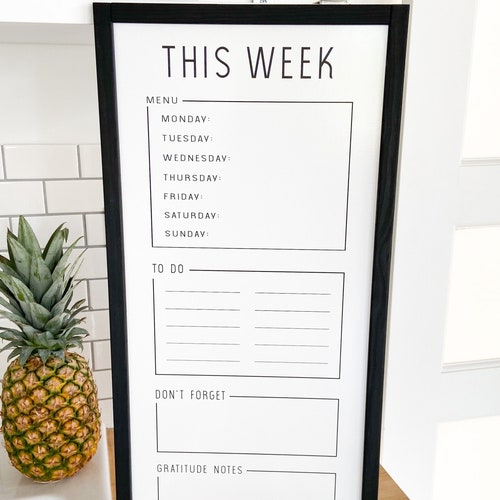 THIS WEEK
MENU
MONDAY:
TUESDAY:
WEDNESDAY:
THURSDAY:
FRIDAY:
SATURDAY:
SUNDAY:
TO DO
DON'T FORGET
GRATITUDE NOTES